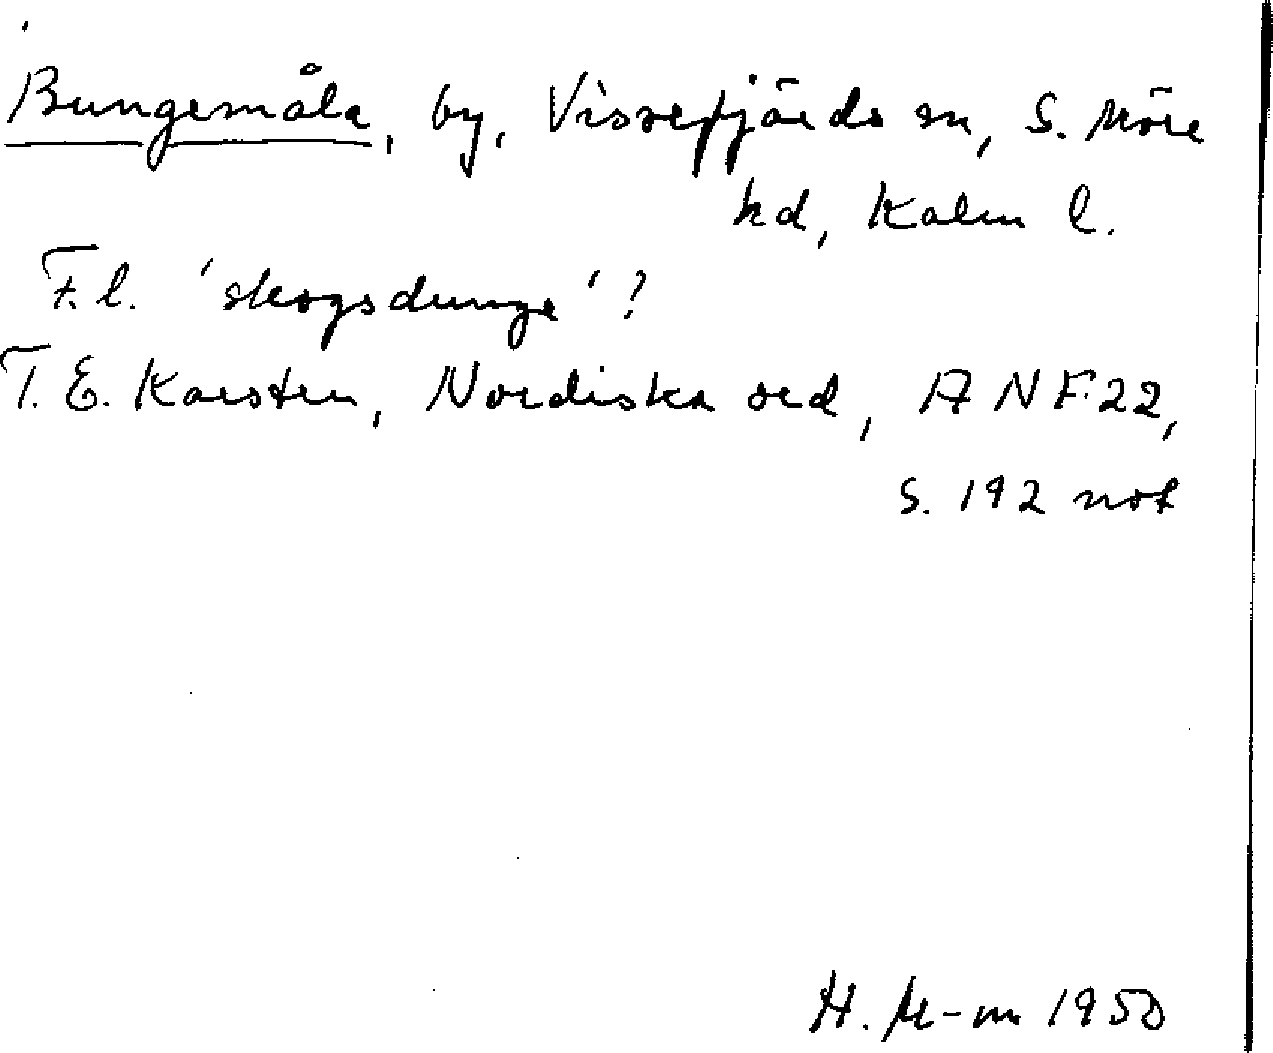 Bungemåla, by, Vissefjärds sn, S. Möre
hd, Kalm l.
F.l. 'skogsdunge'?
T. E. Karsten, Nordiska ord, ANF 22,
s. 192 not
H. M-m 1950